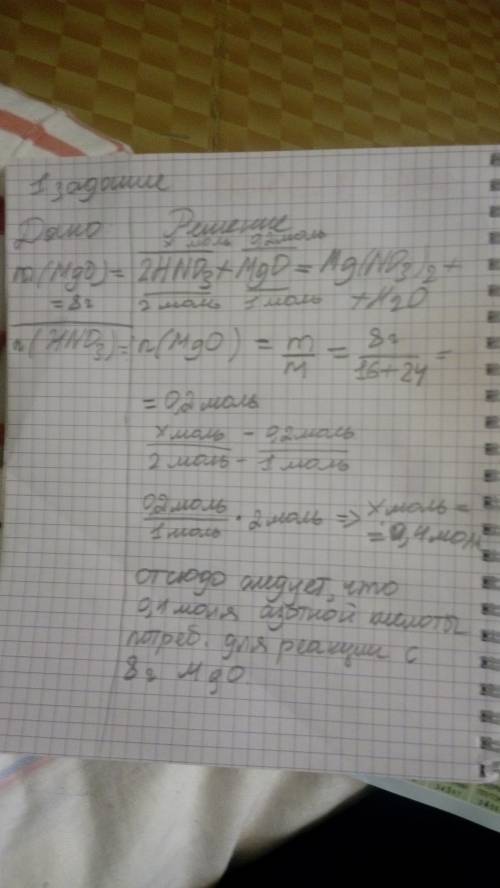 1 задание
Дано Решение
x моль 0,2моль
m(MgO)= 2HNO3+MgO = Mg(NO3)2 +
=8г 2 моль 1 моль +H2O
n(HNO3)= n(MgO) = m/M = 8г/16+24 =
= 0,2 моль
x моль - 0,2моль
2 моль - 1 моль
0,2моль/1моль · 2 моль => x моль =
= 0,4 мол
отсюдо следует, что
0,4 моля азотной кислоты
потреб. для реакции с
8 г MgO